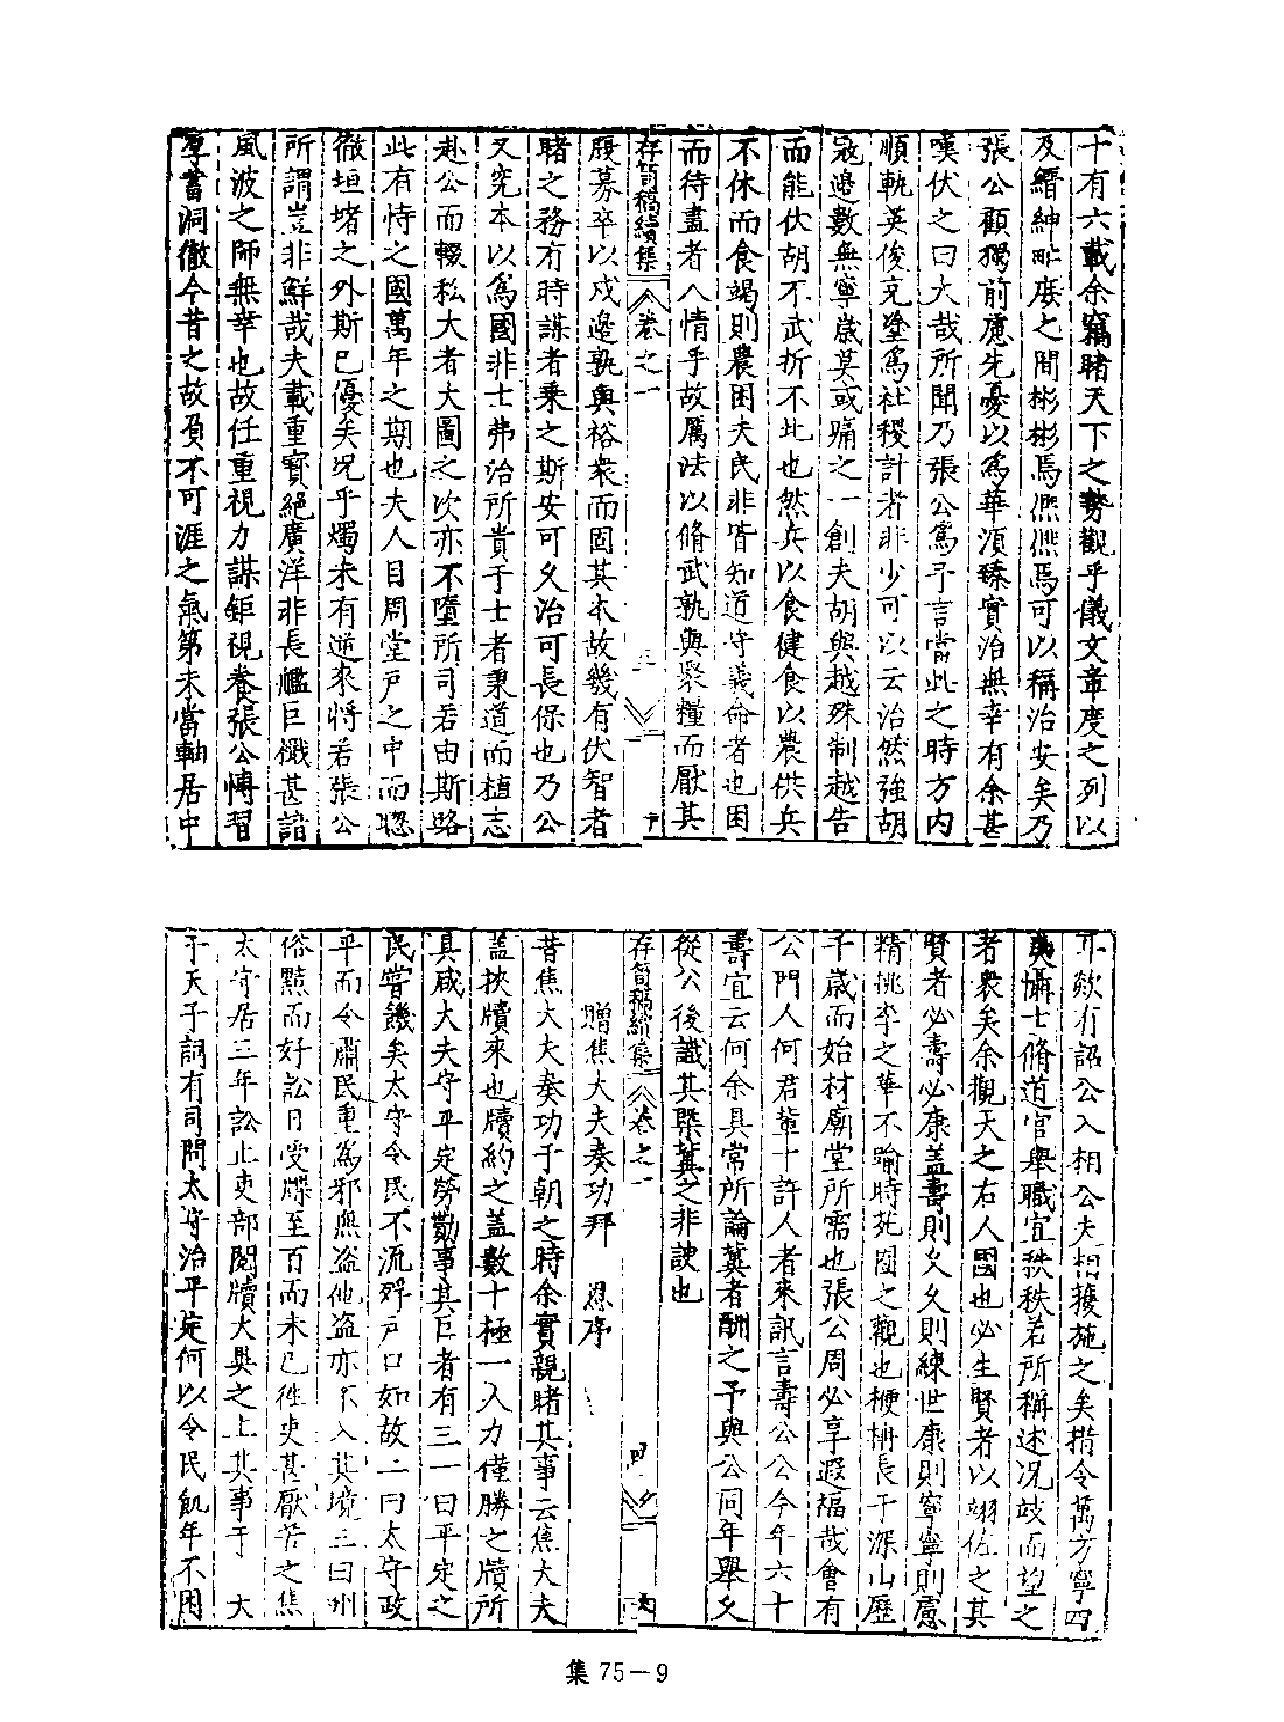 十有六載余竊睹天下之勢觀乎儀文章度之列以
及縉紳畛庋之間彬彬焉濟濟焉可以稱治安矣乃
張公顧獨前慮先憂以爲華湏臻實治無幸有余甚
嘆伏之曰大哉所聞乃張公爲予言當此之時方内
順軌英俊充塗爲社稷計者非少可以云治然強胡
寇邉數無寧歲莫或痛之一創夫胡與越殊制越告
而能伏胡不武折不北也然兵以食健食以農供兵
不休而食竭則農困夫民非皆知道守義命者也困
而待盡者人情乎故厲法以脩武孰與聚糧而厭其
存笥稿續集 卷之一
腹募卒以戍邉孰與裕衆而固其本故幾有伏智者
睹之務有時謀者乗之斯安可久治可長保也乃公
又究本以爲國非士弗治所貴于士者秉道而植志
赴公而輟私大者大圖之次亦不墮所司若由斯略
此有恃之國萬年之期也夫人目周堂戸之中而聰
徹垣堵之外斯已優矣况乎燭未有逆來將若張公
所謂豈非鮮哉夫載重寳絶廣洋非長艦巨檝甚諳
風波之師無幸也故任重視力謀鉅視養張公博習
羣書洞徹今昔之故負不可涯之氣第未當軸居中
耳欻有詔公入相公夫相䕶施之矣措令萬方寧四
夷懾士脩道官舉職宜秩秩若所稱述况跂而望之
者衆矣余觀天之右人國也必生賢者以翊佐之其
賢者必壽必康盖壽則久久則練世康則寧寧則慮
精桃李之華不踰時苑囿之觀也楩柟長于深山歷
千歲而始材廟堂所需也張公周必享遐福哉會有
公門人何君輩十許人者來訊言壽公公今年六十
壽宜云何余具常所論冀者酬之予與公同年舉久
從公後識其槩冀之非諛也
存笥稿續集 卷之一
贈焦大夫奏功拜 恩序
昔焦大夫奏功于朝之時余實親睹其事云焦大夫
盖挾牘來也牘約之盖數十極一人力僅勝之牘所
具咸大夫守平定勞勩事其巨者有三一曰平定之
民嘗饑矣太守令民不流殍戸口如故二曰太守政
平而令肅民重爲邪無盗他盗亦不入其境三曰州
俗黠而好訟日受牒至百而未已徃吏甚厭苦之焦
太守居三年訟止吏部閲牘大異之上其事于 大
于天子詞有司問太守治平定何以令民飢年不困
集 75－9